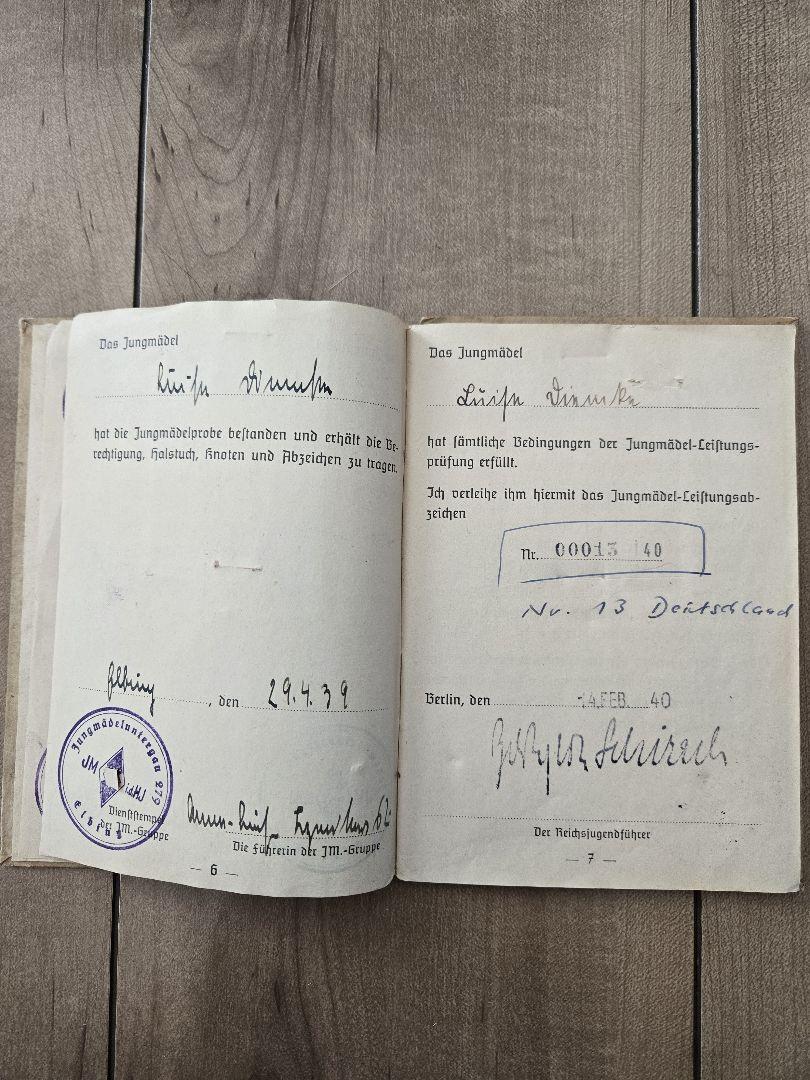 Das Jungmädel
Luise Diemke
hat die Jungmädelprobe bestanden und erhält die Be-
rechtigung, Halstuch, Knoten und Abzeichen zu tragen.
Elbing, den 29.4.39
Jungmädeluntergau 279
JM idHJ
Elbing
Dienststempel
der JM.-Gruppe
Die Führerin der JM.-Gruppe
— 6 —
Das Jungmädel
Luise Diemke
hat sämtliche Bedingungen der Jungmädel-Leistungs-
prüfung erfüllt.
Ich verleihe ihm hiermit das Jungmädel-Leistungsab-
zeichen
Nr. 00013 40
Nr. 13 Deutschland
Berlin, den -4.FEB. 40
Schirach
Der Reichsjugendführer
— 7 —